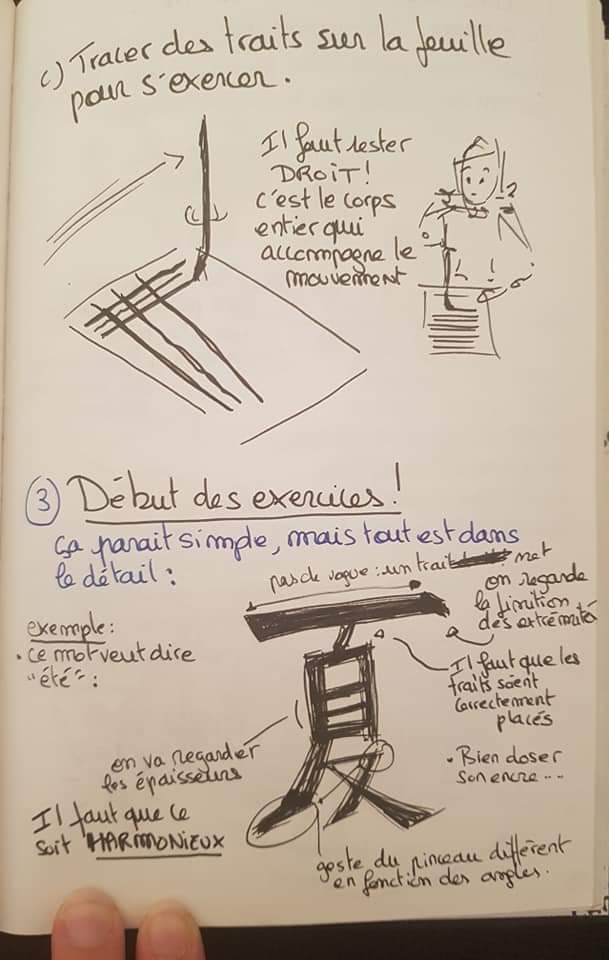 c) Tracer des traits sur la feuille
pour s'exercer.
Il faut rester
DROIT!
c'est le corps
entier qui
accompagne le
mouvement
③ Début des exercices!
ça parait simple, mais tout est dans
le détail :
pas de vague : un trait net
exemple :
• ce mot veut dire
"été" :
夏
on regarde
la finition
des extrémités
Il faut que les
traits soient
correctement
placés
• Bien doser
son encre...
on va regarder
les épaisseurs
Il faut que ce
soit HARMONIEUX
geste du pinceau différent
en fonction des angles.